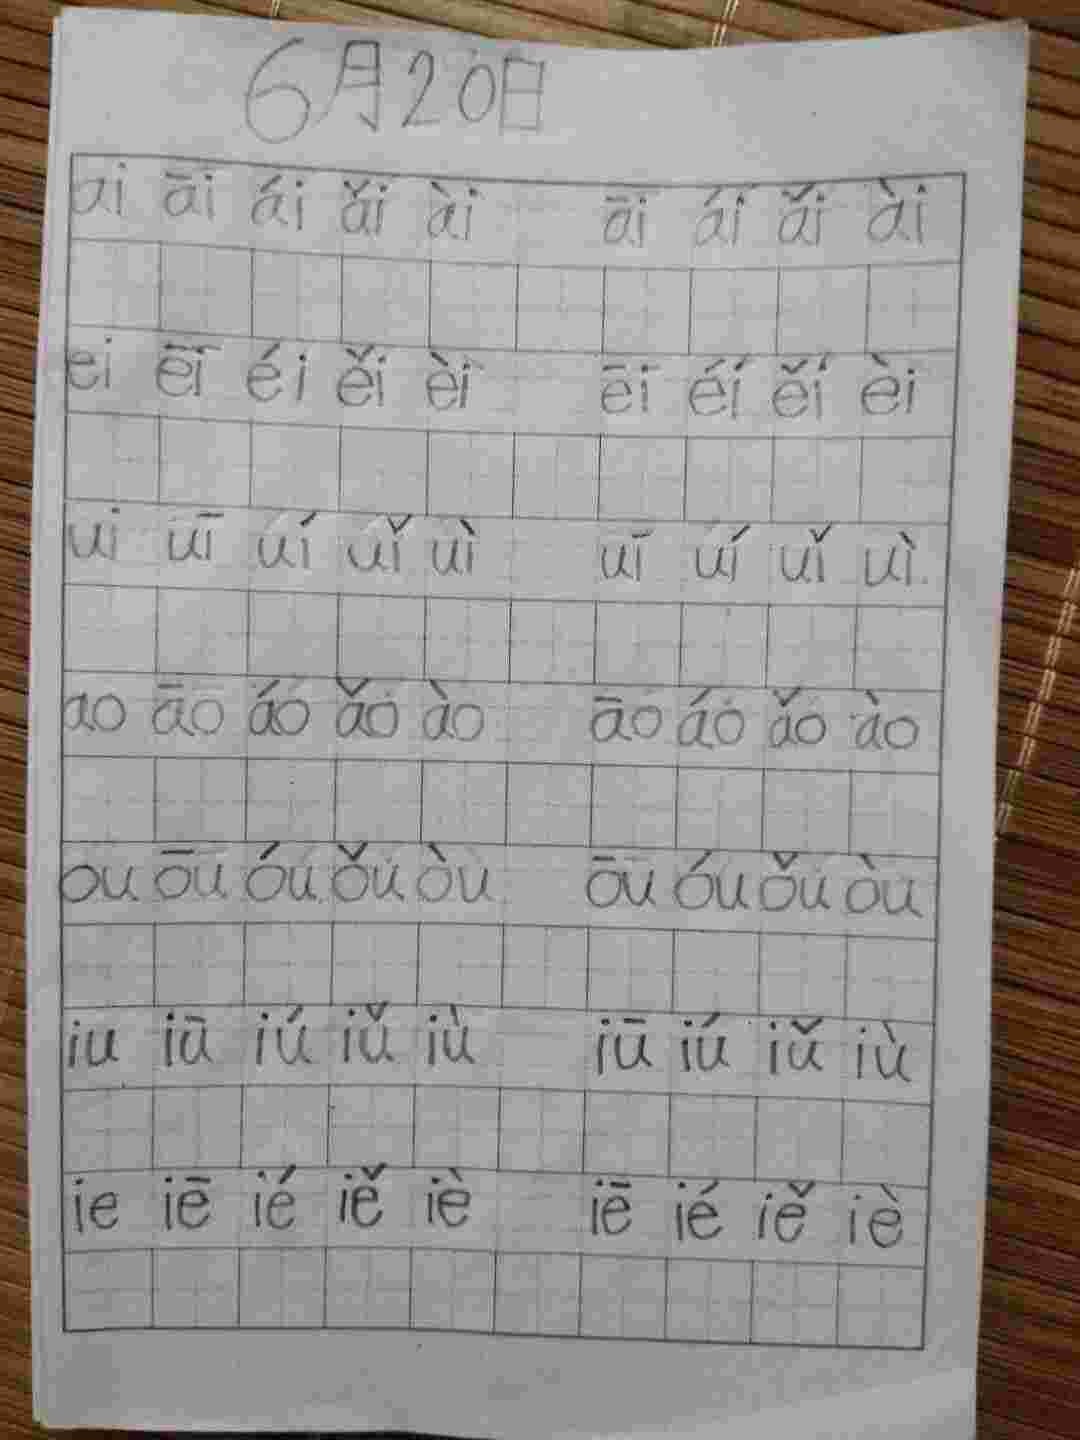 6月20日
ai āi ái ǎi ài āi ái ǎi ài
ei ēi éi ěi èi ēi éi ěi èi
ui uī uí uǐ uì uī uí uǐ uì
ao āo áo ǎo ào āo áo ǎo ào
ou ōu óu ǒu òu ōu óu ǒu òu
iu iū iú iǔ iù iū iú iǔ iù
ie iē ié iě iè iē ié iě iè